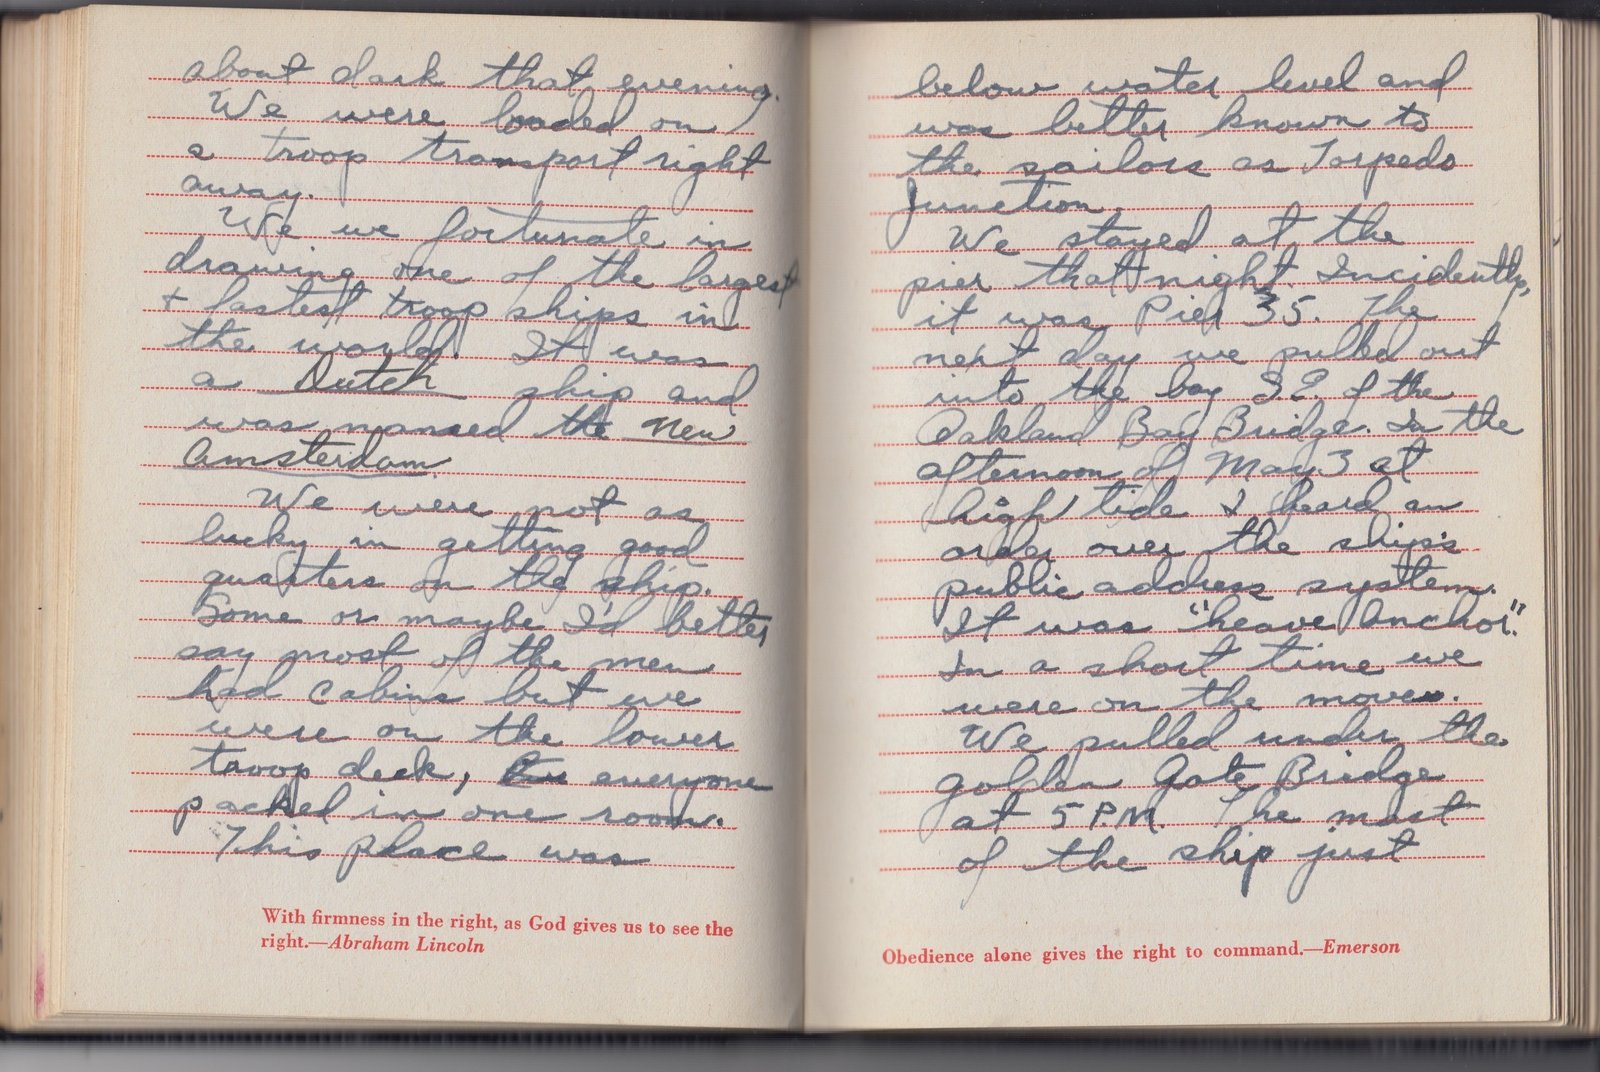 about dark that evening.
We were loaded on
a troop transport right
away.
We we fortunate in
drawing one of the largest
+ fastest troop ships in
the world. It was
a Dutch ship and
was manned the New
Amsterdam.
We were not as
lucky in getting good
quarters on the ship.
Some or maybe I'd better
say most of the men
had cabins but we
were on the lower
troop deck, everyone
packed in one room.
This place was
With firmness in the right, as God gives us to see the
right.—Abraham Lincoln
below water level and
was better known to
the sailors as Torpedo
Junction.
We stayed at the
pier that night. Incidently,
it was Pier 35. The
next day we pulled out
into the bay S.E. of the
Oakland Bay Bridge. In the
afternoon of May 3 at
high tide I heard an
order over the ship's
public address system.
It was "heave Anchor".
In a short time we
were on the move.
We pulled under the
golden Gate Bridge
at 5 P.M. The mast
of the ship just
Obedience alone gives the right to command.—Emerson